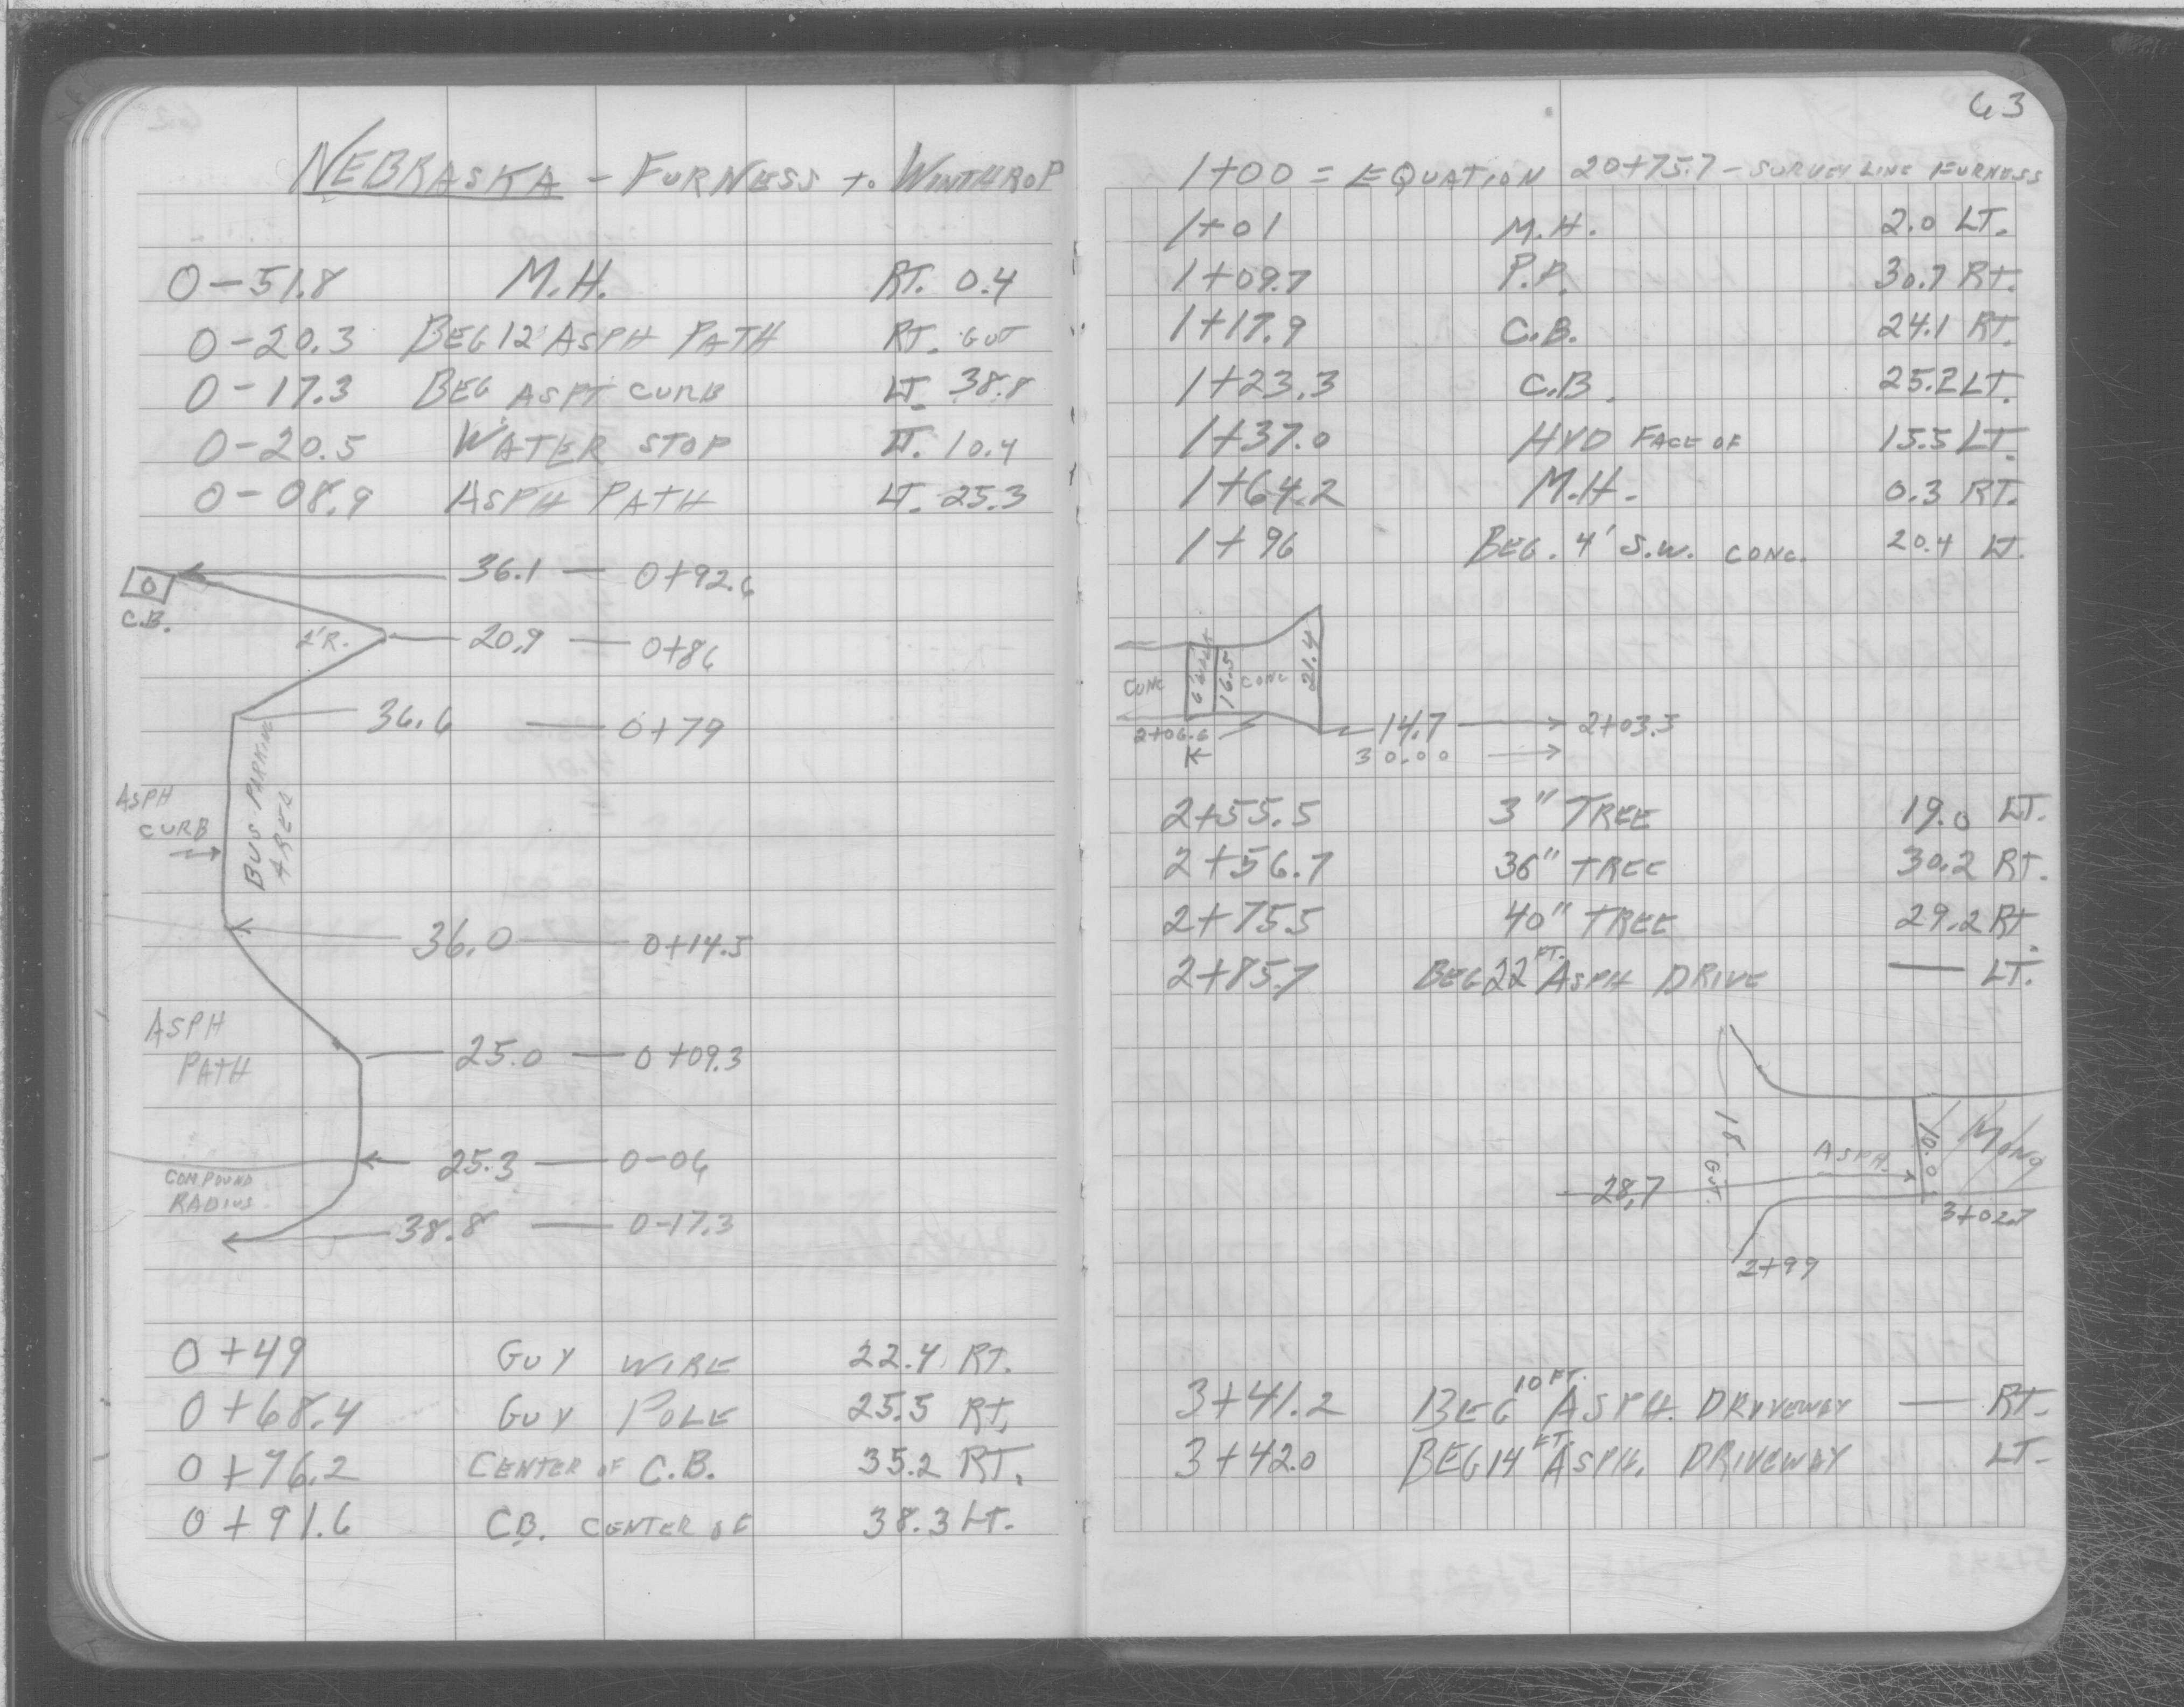 NEBRASKA - FURNESS to WINTHROP
0-51.8 M.H. RT. 0.4
0-20.3 BEG 12' ASPH PATH RT. GUT
0-17.3 BEG ASPT CURB LT. 38.8
0-20.5 WATER STOP LT. 10.4
0-08.9 ASPH PATH LT. 25.3
36.1 — 0+92.6
C.B.
2'R. 20.9 — 0+86
36.6 — 0+79
BUS PARKING AREA
ASPH CURB
36.0 — 0+14.5
ASPH PATH
25.0 — 0+09.3
25.3 — 0-06
COMPOUND RADIUS
38.8 — 0-17.3
0+49 GUY WIRE 22.4 RT.
0+68.4 GUY POLE 25.5 RT.
0+76.2 CENTER OF C.B. 35.2 RT.
0+91.6 CB. CENTER OF 38.3 LT.
63
1+00 = EQUATION 20+75.7 - SURVEY LINE FURNESS
1+01 M.H. 2.0 LT.
1+09.7 P.P. 30.7 RT.
1+17.9 C.B. 24.1 RT.
1+23.3 C.B. 25.2 LT.
1+37.0 HYD FACE OF 15.5 LT.
1+64.2 M.H. 0.3 RT.
1+96 BEG. 4' S.W. CONC. 20.4 LT.
CONC 16.5 CONC 21.4
2+06.6 14.7 → 2+03.5
30.00
2+55.5 3" TREE 19.0 LT.
2+56.7 36" TREE 30.2 RT.
2+75.5 40" TREE 29.2 RT.
2+85.7 BEG 22 FT. ASPH DRIVE — LT.
18 GUT.
ASPH. 10.0
28.7
3+02.7
2+99
3+41.2 BEG 10 FT. ASPH. DRIVEWAY — RT.
3+42.0 BEG 14 FT. ASPH. DRIVEWAY LT.